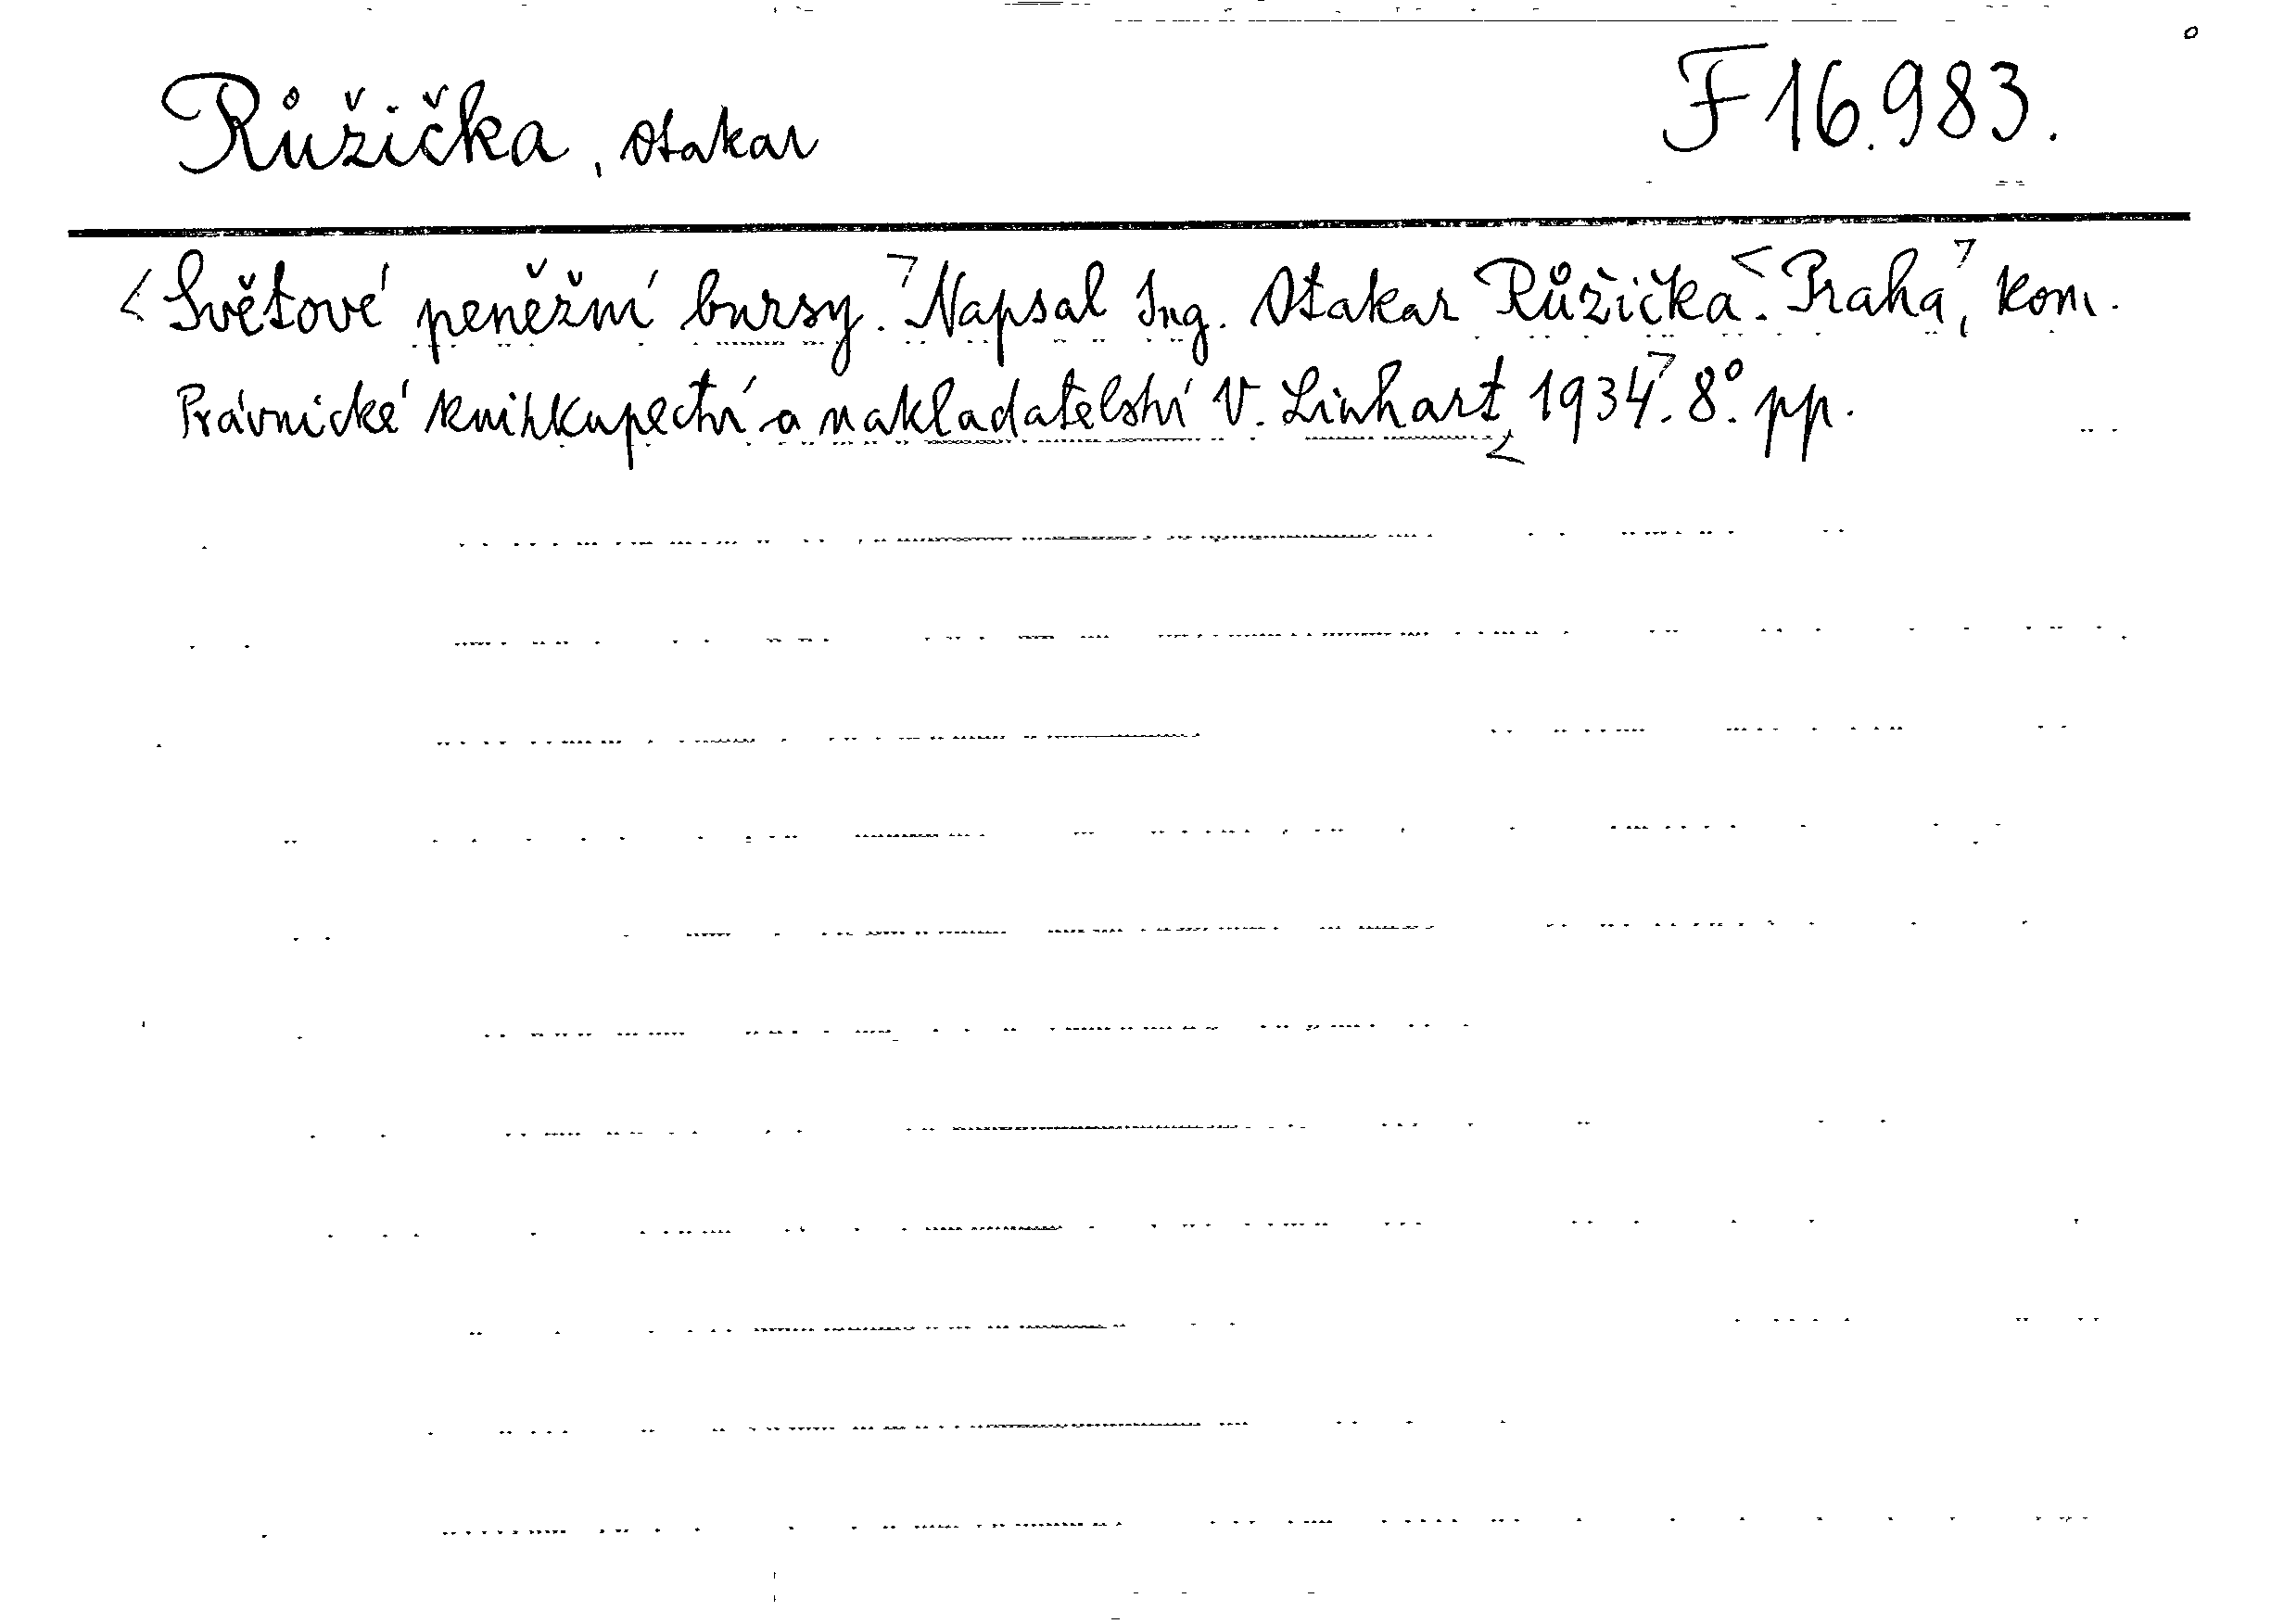 Růžička, Otakar F 16.983.
<Světové peněžní bursy.> Napsal Ing. Otakar Růžička. <Praha>, kom.
Právnické knihkupectví a nakladatelství V. Linhart, <1934>. 8°. pp.